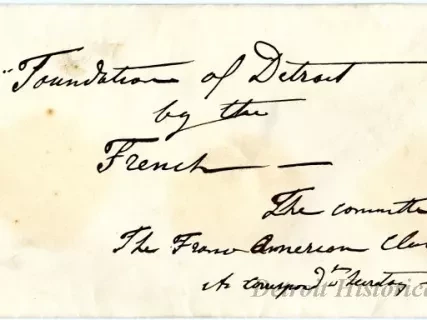 "Foundation of Detroit
by the
French — —
The committe
The Franco American Clu
its correspond'g Secretary
Detroit Historica